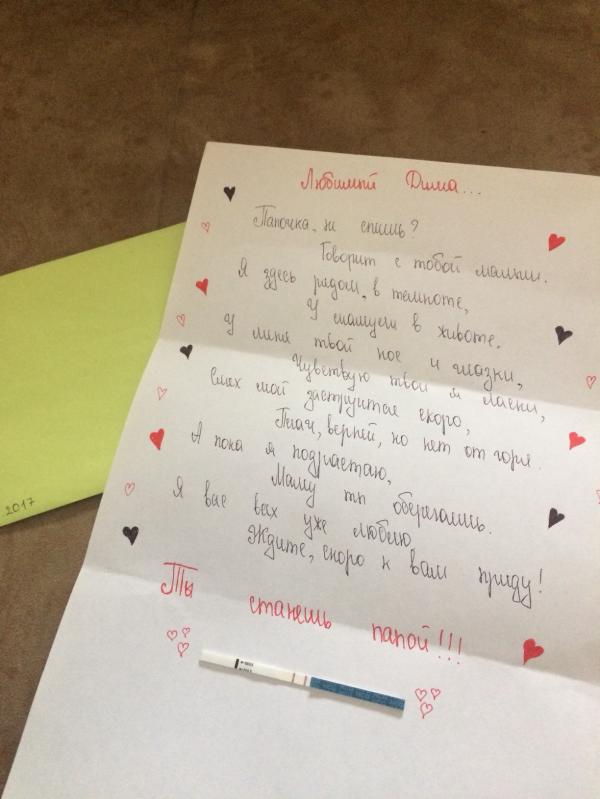 Любимый Дима...
Папочка, не спишь?
Говорит с тобой малыш.
Я здесь рядом, в темноте,
У мамули в животе.
У меня твой нос и глазки,
Чувствую твои я ласки,
Смех мой заструится скоро,
Плач, верней, но не от горя.
А пока я подрастаю,
Маму ты оберегаешь.
Я вас всех уже люблю
Ждите, скоро к вам приду!
Ты станешь папой!!!
.2017